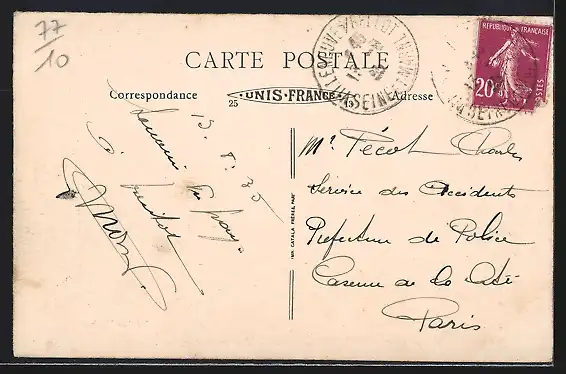 77
10
CARTE POSTALE
Correspondance
25 UNIS-FRANCE
Adresse
REPUBLIQUE FRANÇAISE
20
POSTES
13
Souvenir
à bientôt
IMP. CATALA FRÈRES, PARIS
Mr Pécot Charles
Service des Accidents
Préfecture de Police
Caserne de la Cité
Paris